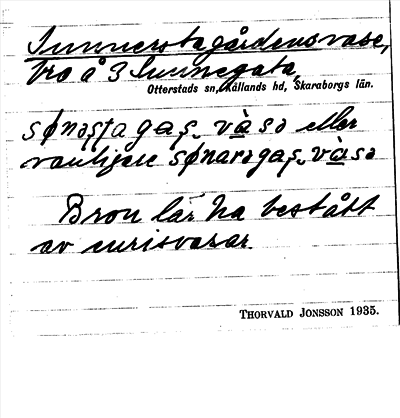 Sunnerstagårdens vase,
bro å 3 Sunnegata,
Otterstads sn, Kållands hd, Skaraborgs län.
sønəsṭagaṣ. vàsə eller
vanligare sønarəgaṣ. vàsə
Bron lär ha bestått
av enrisvasar.
THORVALD JONSSON 1935.